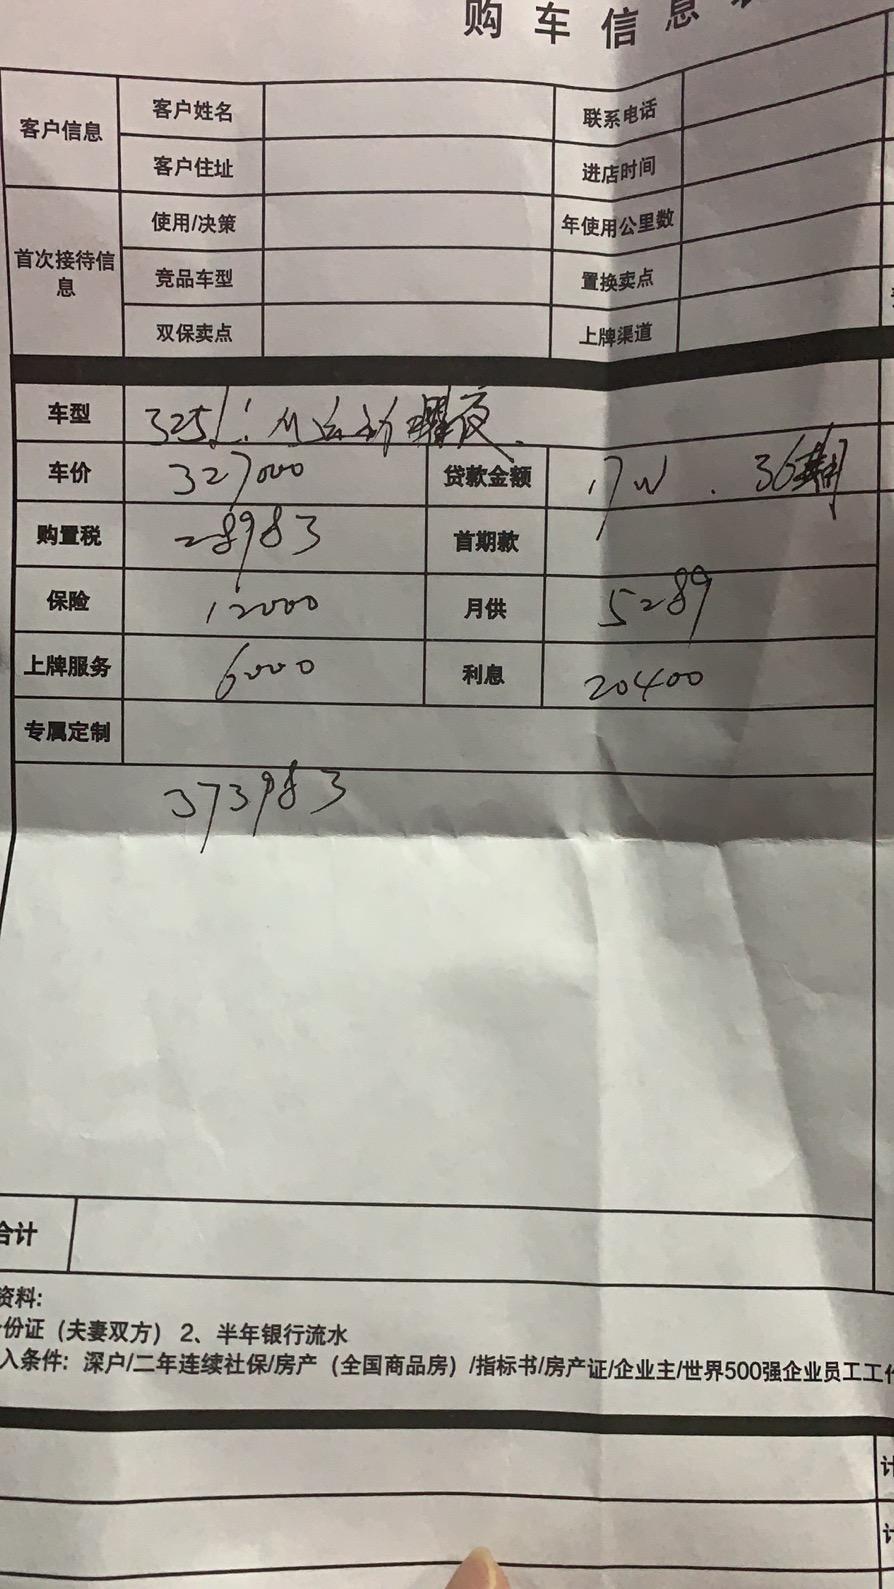 购车信息
客户信息 客户姓名 联系电话
客户住址 进店时间
首次接待信息 使用/决策 年使用公里数
竞品车型 置换卖点
双保卖点 上牌渠道
车型 325Li M运动曜夜
车价 327000 贷款金额 17W . 36期
购置税 28983 首期款
保险 12000 月供 5289
上牌服务 6000 利息 20400
专属定制
373983
合计
资料:
份证（夫妻双方） 2、半年银行流水
入条件: 深户/二年连续社保/房产（全国商品房）/指标书/房产证/企业主/世界500强企业员工工
计
计